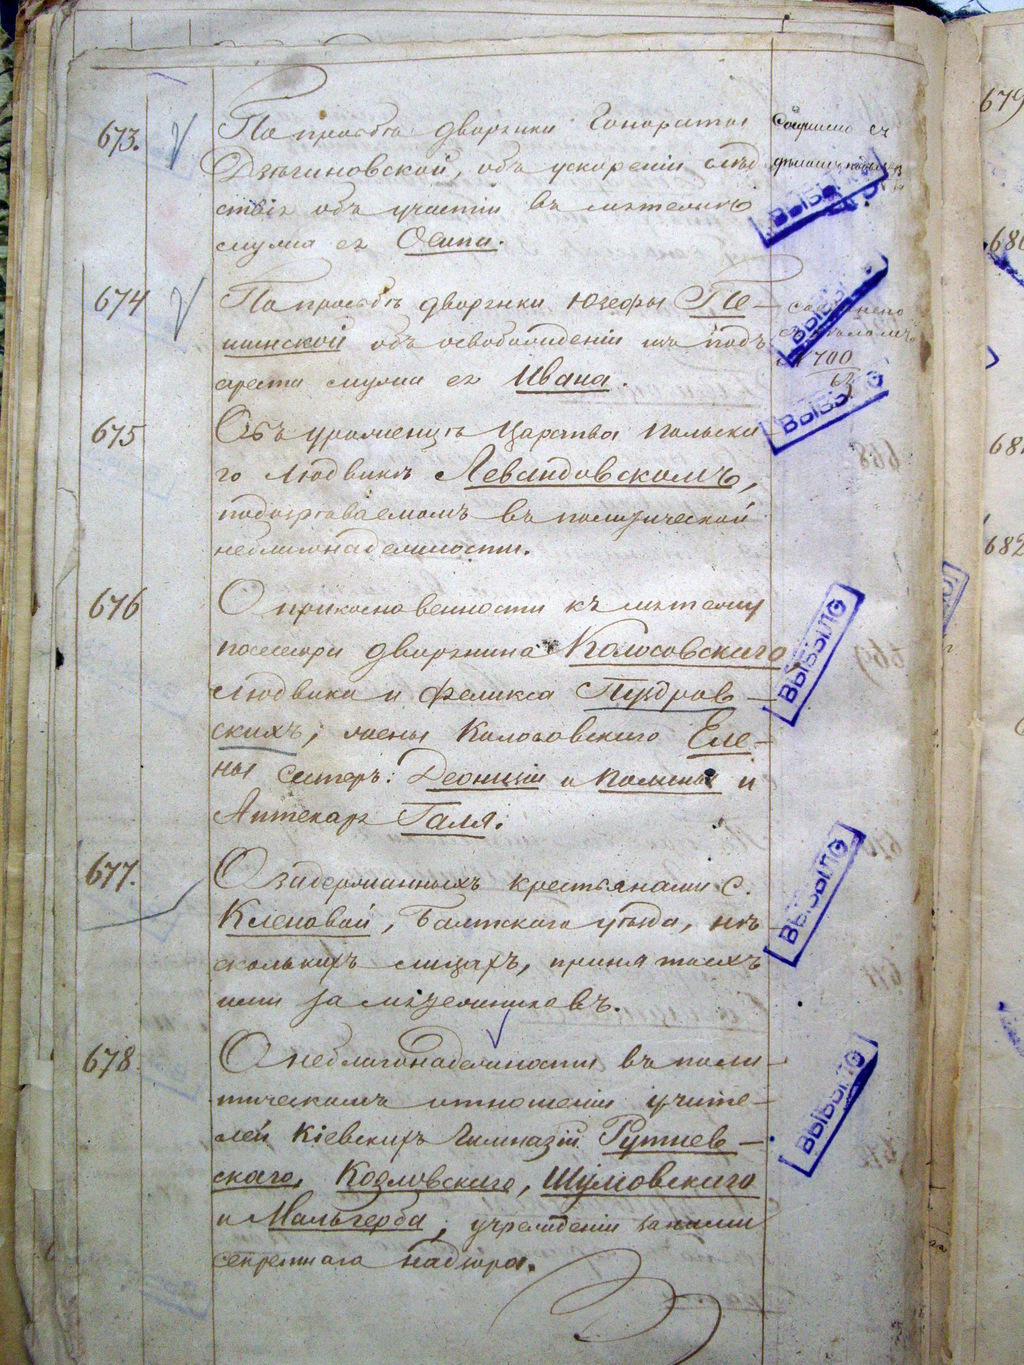 673.
По просьбѣ дворянки Гоноратты
Дзюгиновской, объ ускореніи слѣд
ствія объ участіи въ мятежѣ
мужа ея Осипа.
Сошито съ
ВЫБЫЛО
674
По просьбѣ дворянки Юзефы
объ освобожденіи изъ подъ
ареста мужа ея Ивана.
700
ВЫБЫЛО
675
Объ уроженцѣ Царства Польска
го Людвикѣ Левандовскомъ,
подозрѣваемомъ въ политической
неблагонадежности.
ВЫБЫЛО
676
О прикосновенности къ мятежу
поссесора дворянина Колосовскаго,
Людвика и Феликса Пуздров
скихъ, жены Колосовскаго Еле-
ны сестеръ: Деониціи и и
Аптекаря Галля.
ВЫБЫЛО
677.
О задержанныхъ крестьянами с.
Кленовой, Балтскаго уѣзда, нѣ
сколькихъ лицахъ, принятыхъ
ими за мятежниковъ.
ВЫБЫЛО
678
О неблагонадежности въ поли
тическомъ отношеніи учите-
лей Кіевскихъ Гимназій
скаго, Козловскаго, Шумовскаго
и Мальгерба, учрежденіи за ними
секретнаго надзора.
ВЫБЫЛО
679
680
681
682